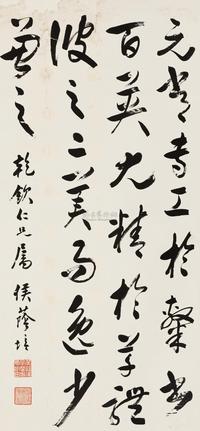 元常專工於隸書
百英尤精於草體
彼之二美而逸少
兼之
乾欽仁兄屬 侯蔭培